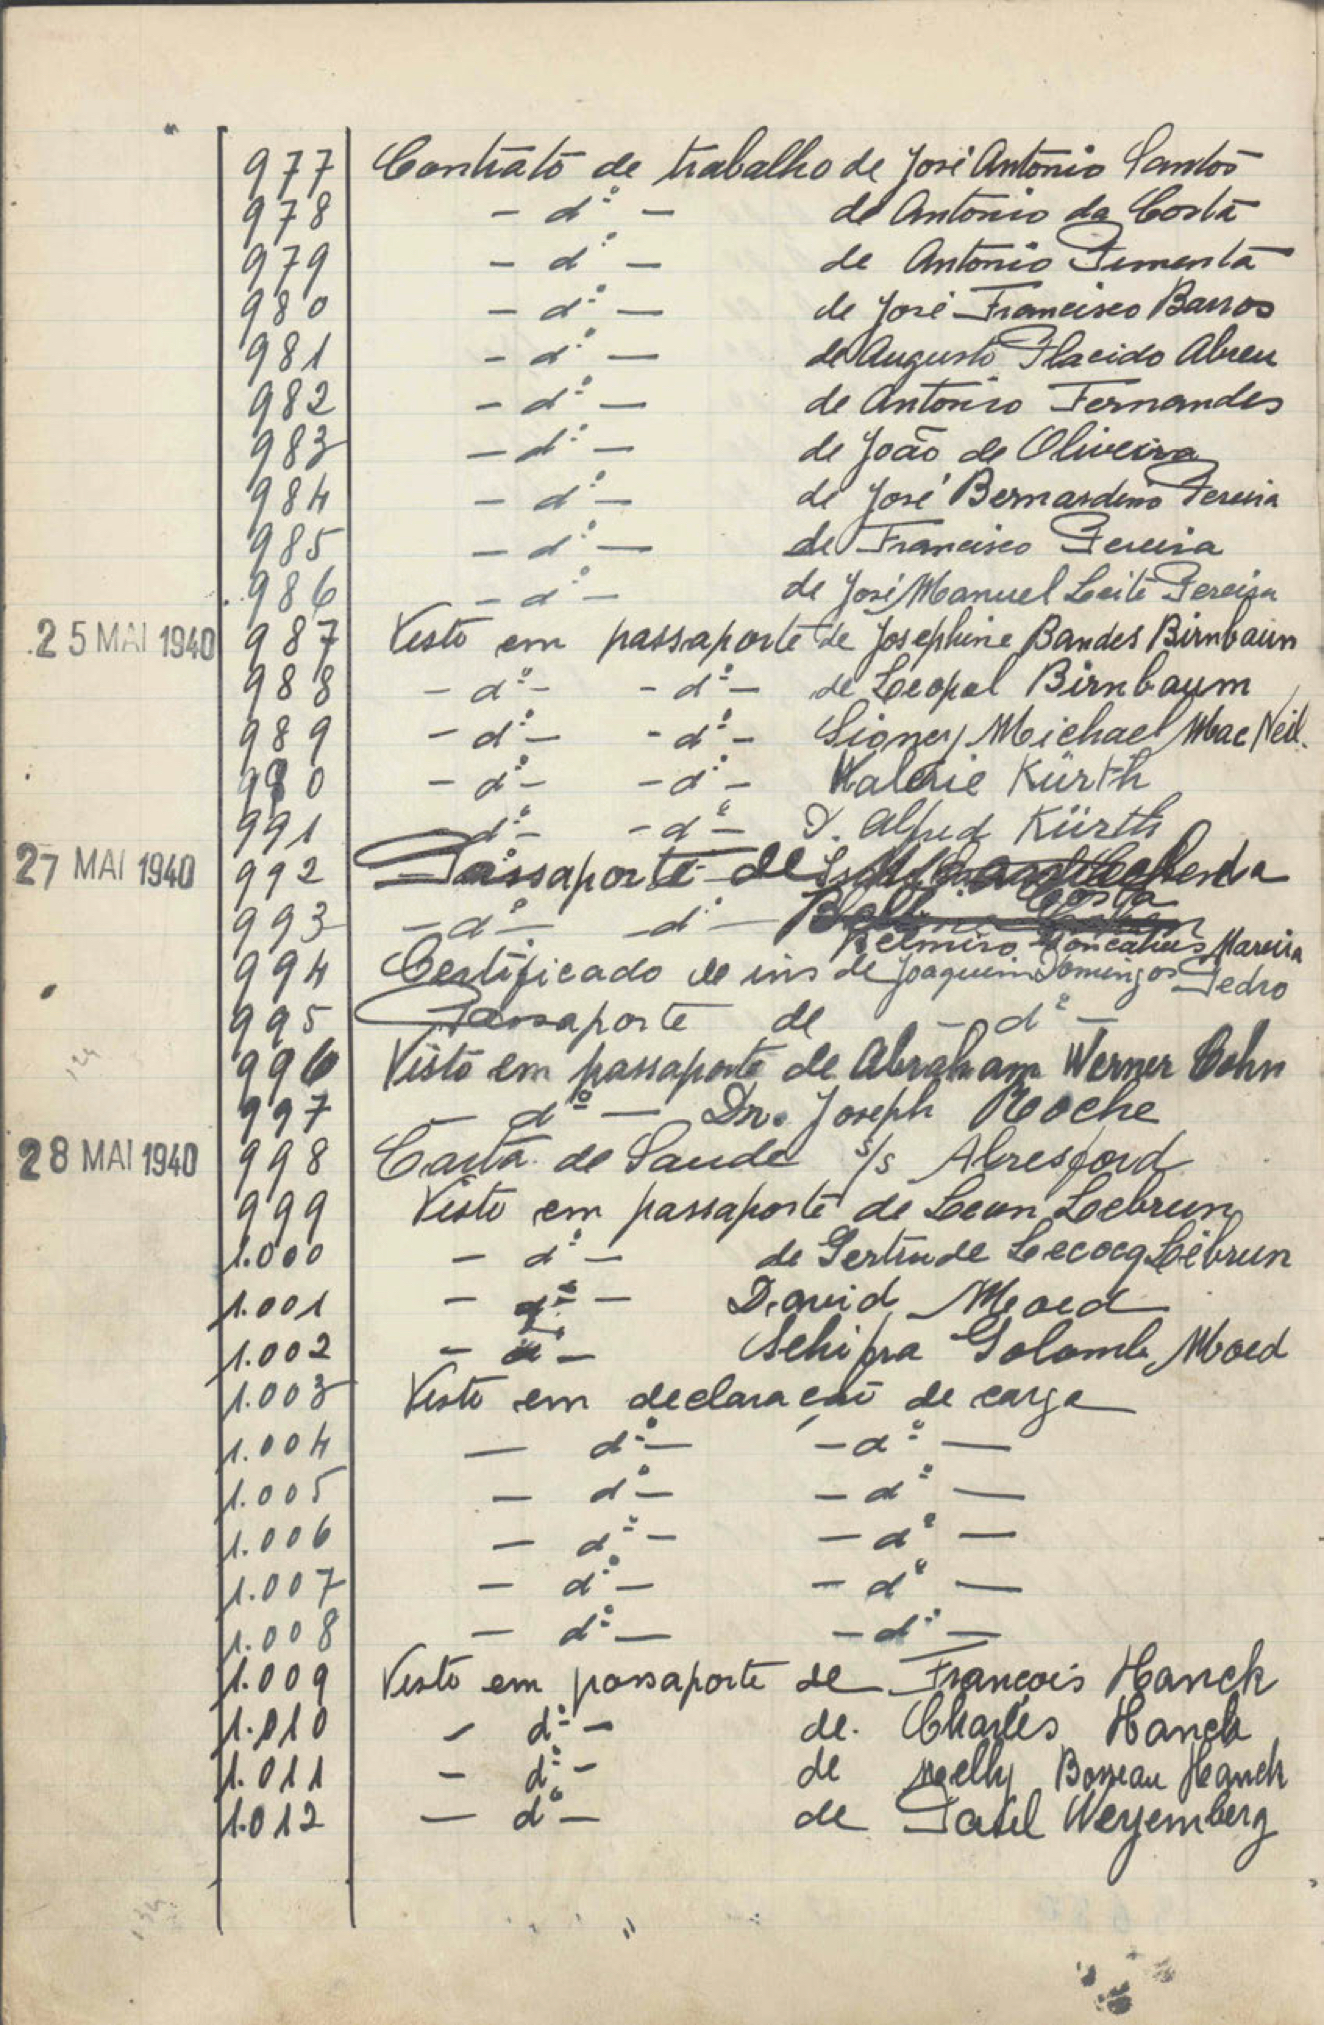 977 Contrato de trabalho de José António Santos
978 - dº - de António da Costa
979 - dº - de António Pimenta
980 - dº - de José Francisco Barros
981 - dº - de Augusto Placido Abreu
982 - dº - de António Fernandes
983 - dº - de João de Oliveira
984 - dº - de José Bernardino Pereira
985 - dº - de Francisco Pereira
986 - dº - de José Manuel Leite Pereira
25 MAI 1940 987 Visto em passaporte de Josephine Bandes Birnbaum
988 - dº - - dº - de Leopol Birnbaum
989 - dº - - dº - Sioney Michael Mac Neil.
990 - dº - - dº - Valerie Kürth
991 - dº - - dº - Alfred Kürth
27 MAI 1940 992 Passaporte de
Costa
993 - dº - - dº -
Belmiro Goncalves Mareira
994 Certificado de ins de Joaquim Domingos Pedro
995 Passaporte de - dº -
996 Visto em passaporte de Abraham Werner Cohn
997 - dº - Dr. Joseph Roche
28 MAI 1940 998 Carta de Saude s/s Alresford
999 Visto em passaporte de Leon Lebrun
1.000 - dº - de Gertrude Lecocq Lebrun
1.001 - dº - David Moed
1.002 - dº - Schifra Golomb Moed
1.003 Visto em declaração de carga
1.004 - dº - - dº -
1.005 - dº - - dº -
1.006 - dº - - dº -
1.007 - dº - - dº -
1.008 - dº - - dº -
1.009 Visto em passaporte de François Hanck
1.010 - dº - de. Charles Hanck
1.011 - dº - de Nelly Hanck
1.012 - dº - de Paul Weyemberg